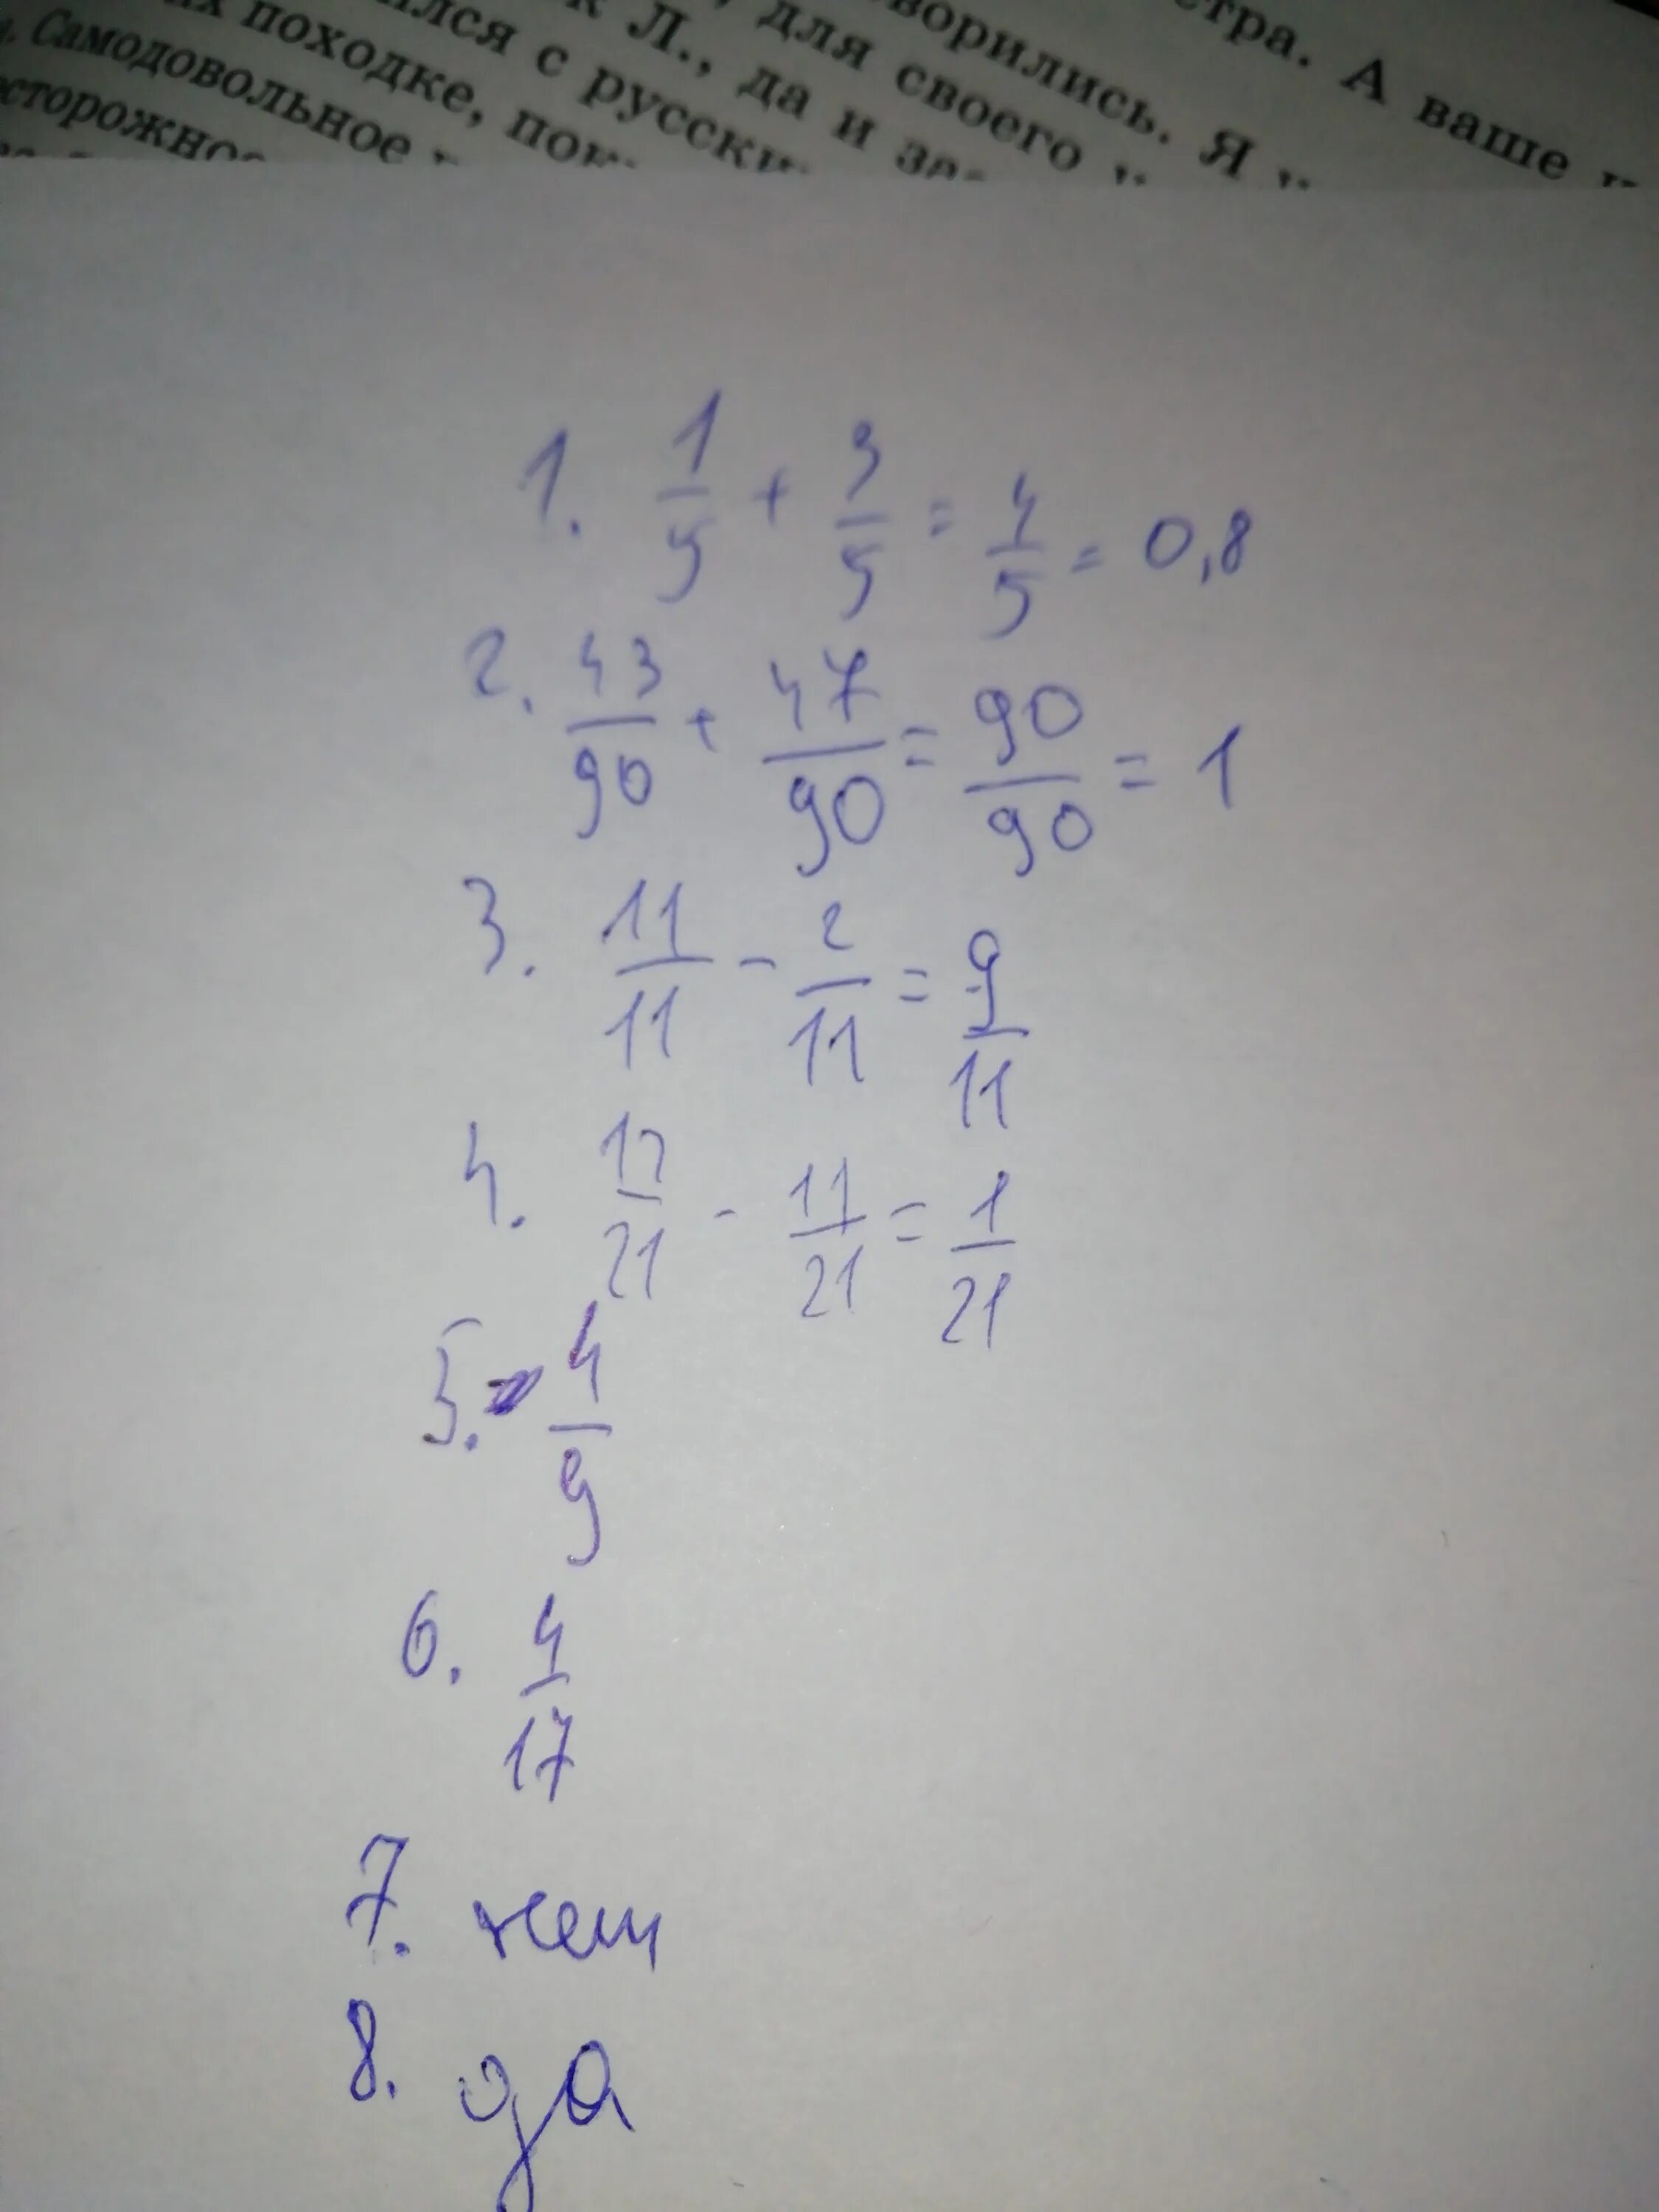 стра. А ваше
ворились. Я
, для своего
к Л., да и за-
ился с русски
походке, пок
Самодовольное
сторожно
1. 1/5 + 3/5 = 4/5 = 0,8
2. 43/90 + 47/90 = 90/90 = 1
3. 11/11 - 2/11 = 9/11
4. 12/21 - 11/21 = 1/21
5. 4/9
6. 4/17
7. нет
8. да